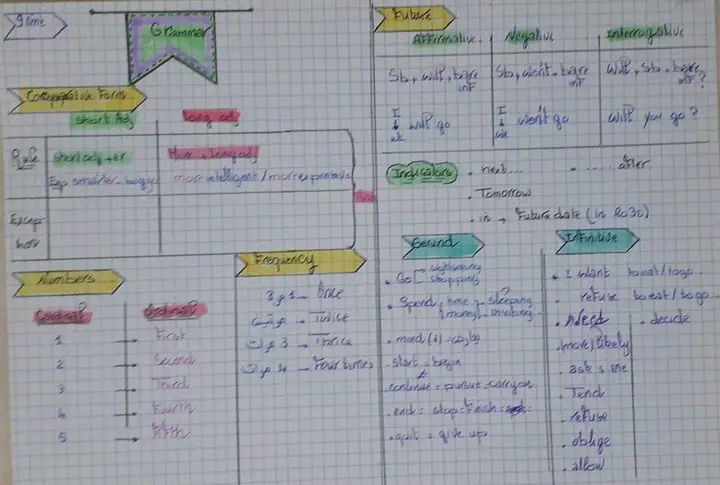 Grammar
Comparative Form
short Adj
long adj
Rule
short adj + er
More + long adj
Exp smarter - bigger
more intelligent / more expensive
Excep
tion
Numbers
Cardinal
Ordinal
1 → First
2 → Second
3 → Third
4 → Fourth
5 → Fifth
Frequency
once
مرتين → Twice
3 مرات → Thrice
4 مرات → Four times
Future
Affirmative
Negative
Interrogative
Sb + will + bare inf
Sb + won't + bare inf
Will + Sb + bare inf ?
I
we
will go
I
we
won't go
Will you go ?
Indicators
. next...
. ...... after
. Tomorrow
. in → Future date (in 2030)
Gerund
. Go
sightseeing
shopping
. Spend
time
sleeping
money
. mind (s)
. start = begin
continue = pursue = carry on
. end = stop = finish =
. quit = give up
Infinitive
. I want to eat / to go..
. refuse to eat / to go..
. need
. decide
. more likely
. ask s one
. Tend
. refuse
. oblige
. allow